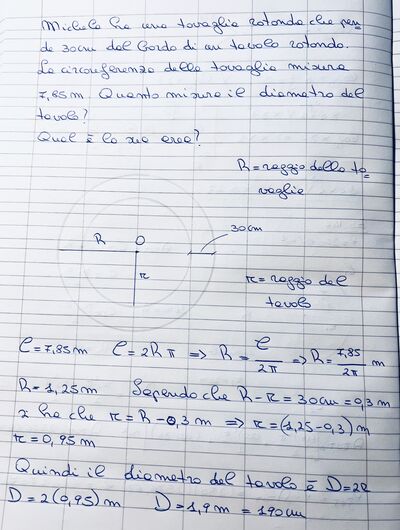 Michele ha una tovaglia rotonda che pen=
de 30cm dal bordo di un tavolo rotondo.
La circonferenza della tovaglia misura
7,85m Quanto misura il diametro del
tavolo?
Qual è la sua area?
R = raggio della to=
vaglia
30cm
R O
r
r = raggio del
tavolo
C = 7,85m C = 2Rπ => R = C/2π => R = 7,85/2π m
R = 1,25m Sapendo che R - r = 30cm = 0,3m
si ha che r = R - 0,3m => r = (1,25 - 0,3)m
r = 0,95m
Quindi il diametro del tavolo è D = 2r
D = 2(0,95)m D = 1,9m = 190cm